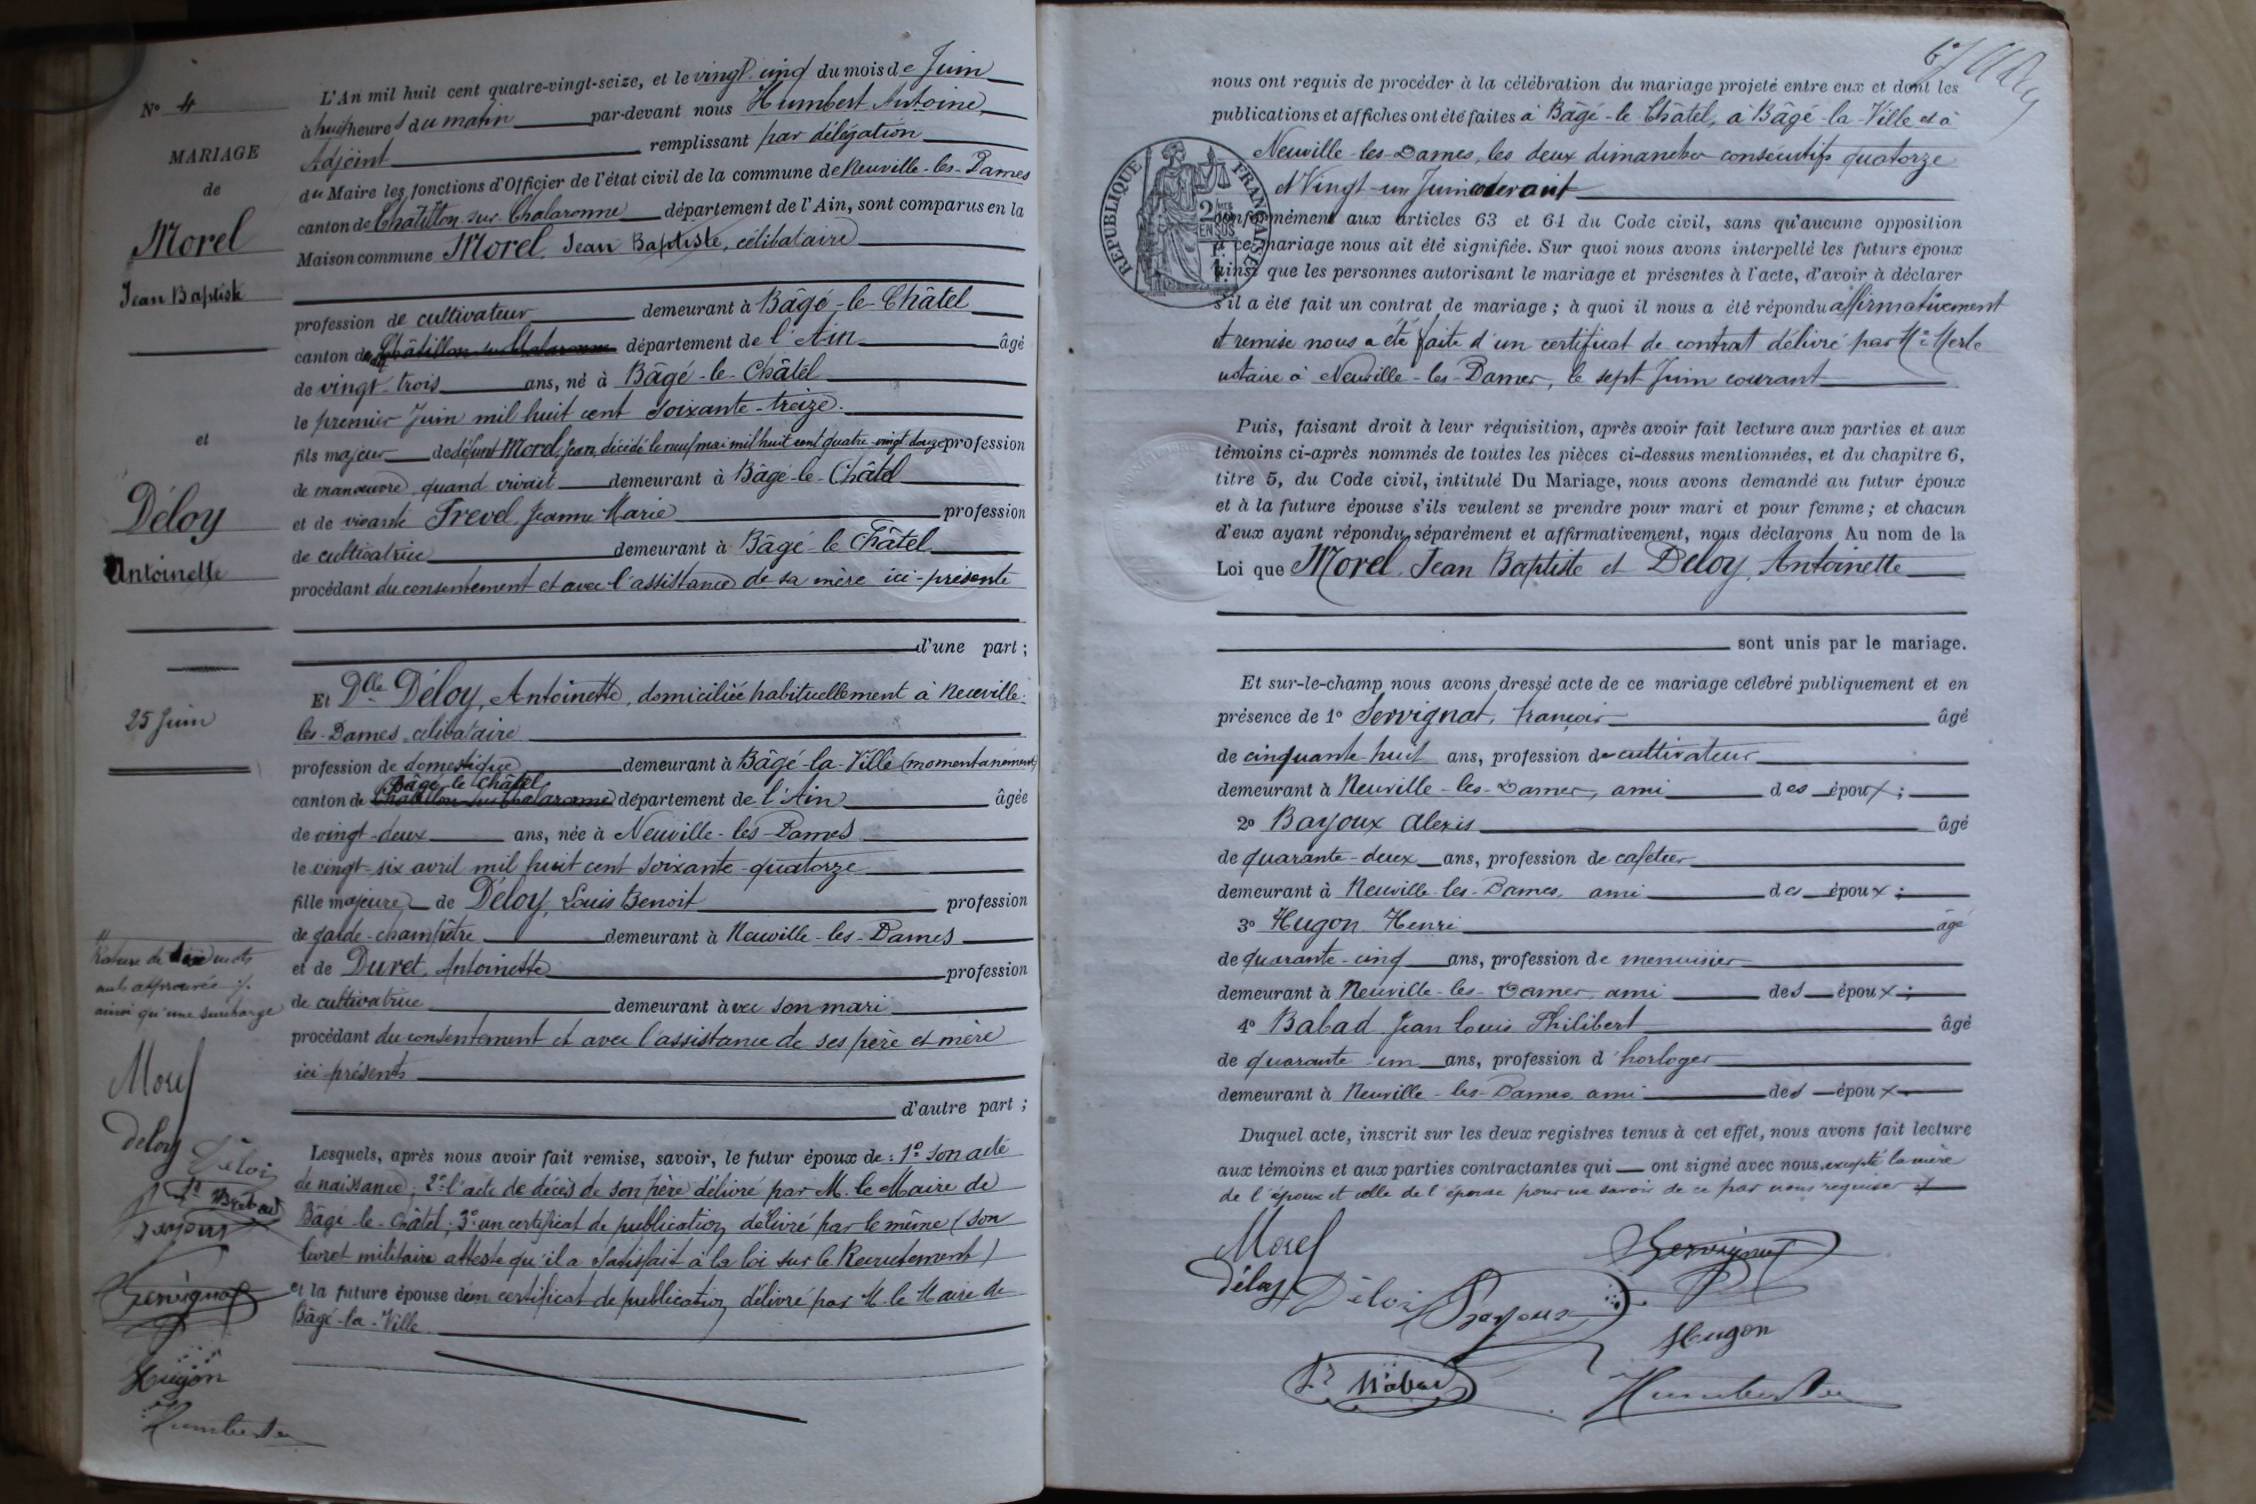 N° 4
MARIAGE
de
Morel
Jean Baptiste
et
Déloy
Antoinette
25 Juin
Rature de mots
nuls approuvée
ainsi qu'une surcharge
Morel
Deloy
Déloi
Babad
Bayoux
Servignat
Hugon
Humbert
L'An mil huit cent quatre-vingt-seize, et le vingt cinq du mois de Juin
à huit heures du matin par-devant nous Humbert Antoine,
Adjoint remplissant par délégation
du Maire les fonctions d'Officier de l'état civil de la commune de Neuville-les-Dames
canton de Chatillon-sur-Chalaronne département de l'Ain, sont comparus en la
Maison commune Morel, Jean Baptiste, célibataire
profession de cultivateur demeurant à Bâgé-le-Châtel
canton de Châtillon sur Chalaronne département de l'Ain âgé
de vingt-trois ans, né à Bâgé-le-Châtel
le premier Juin mil huit cent soixante-treize.
fils majeur de défunt Morel, Jean, décédé le neuf mai mil huit cent quatre-vingt-douze profession
de manœuvre, quand vivait demeurant à Bâgé-le-Châtel
et de vivante Prevel Jeanne Marie profession
de cultivatrice demeurant à Bâgé-le Châtel
procédant du consentement et avec l'assistance de sa mère ici-présente
d'une part ;
Et Dlle Déloy, Antoinette, domiciliée habituellement à Neuville-
les-Dames, célibataire
profession de domestique demeurant à Bâgé-la-Ville (momentanément)
Bâgé-le Châtel
canton de Chatillon sur Chalaronne département de l'Ain âgée
de vingt-deux ans, née à Neuville-les-Dames
le vingt-six avril mil huit cent soixante-quatorze
fille majeure de Déloy, Louis Benoit profession
de garde-champêtre demeurant à Neuville-les-Dames
et de Duret, Antoinette profession
de cultivatrice demeurant avec son mari
procédant du consentement et avec l'assistance de ses père et mère
ici présents
d'autre part ;
Lesquels, après nous avoir fait remise, savoir, le futur époux de : 1° son acte
de naissance ; 2° l'acte de décès de son père délivré par M. le Maire de
Bâgé-le-Châtel ; 3° un certificat de publication délivré par le même (son
livret militaire atteste qu'il a satisfait à la loi sur le Recrutement)
et la future épouse d'un certificat de publication délivré par M. le Maire de
Bâgé-la-Ville
nous ont requis de procéder à la célébration du mariage projeté entre eux et dont les
publications et affiches ont été faites à Bâgé-le-Châtel, à Bâgé-la-Ville et à
Neuville-les-Dames, les deux dimanches consécutifs quatorze
et Vingt-un Juin courant
RÉPUBLIQUE FRANÇAISE
2 DES EN SUS
conformément aux articles 63 et 64 du Code civil, sans qu'aucune opposition
à ce mariage nous ait été signifiée. Sur quoi nous avons interpellé les futurs époux
ainsi que les personnes autorisant le mariage et présentes à l'acte, d'avoir à déclarer
s'il a été fait un contrat de mariage ; à quoi il nous a été répondu affirmativement
et remise nous a été faite d'un certificat de contrat délivré par Me Merle
notaire à Neuville-les-Dames, le sept Juin courant
Puis, faisant droit à leur réquisition, après avoir fait lecture aux parties et aux
témoins ci-après nommés de toutes les pièces ci-dessus mentionnées, et du chapitre 6,
titre 5, du Code civil, intitulé Du Mariage, nous avons demandé au futur époux
et à la future épouse s'ils veulent se prendre pour mari et pour femme ; et chacun
d'eux ayant répondu séparément et affirmativement, nous déclarons Au nom de la
Loi que Morel, Jean Baptiste et Deloy, Antoinette
sont unis par le mariage.
Et sur-le-champ nous avons dressé acte de ce mariage célébré publiquement et en
présence de 1° Servignat, françois âgé
de cinquante-huit ans, profession de cultivateur
demeurant à Neuville-les-Dames, ami des époux ;
2° Bayoux Alexis âgé
de quarante-deux ans, profession de cafetier
demeurant à Neuville-les-Dames, ami des époux ;
3° Hugon Henri âgé
de quarante-cinq ans, profession de menuisier
demeurant à Neuville-les-Dames ami des époux ;
4° Babad Jean Louis Philibert âgé
de quarante-un ans, profession d'horloger
demeurant à Neuville-les-Dames ami des époux
Duquel acte, inscrit sur les deux registres tenus à cet effet, nous avons fait lecture
aux témoins et aux parties contractantes qui ont signé avec nous, excepté la mère
de l'époux et celle de l'épouse pour ne savoir de ce par nous requises
Morel
Servignat
Déloy
Déloi
Bayoux
Hugon
Babad
Humbert